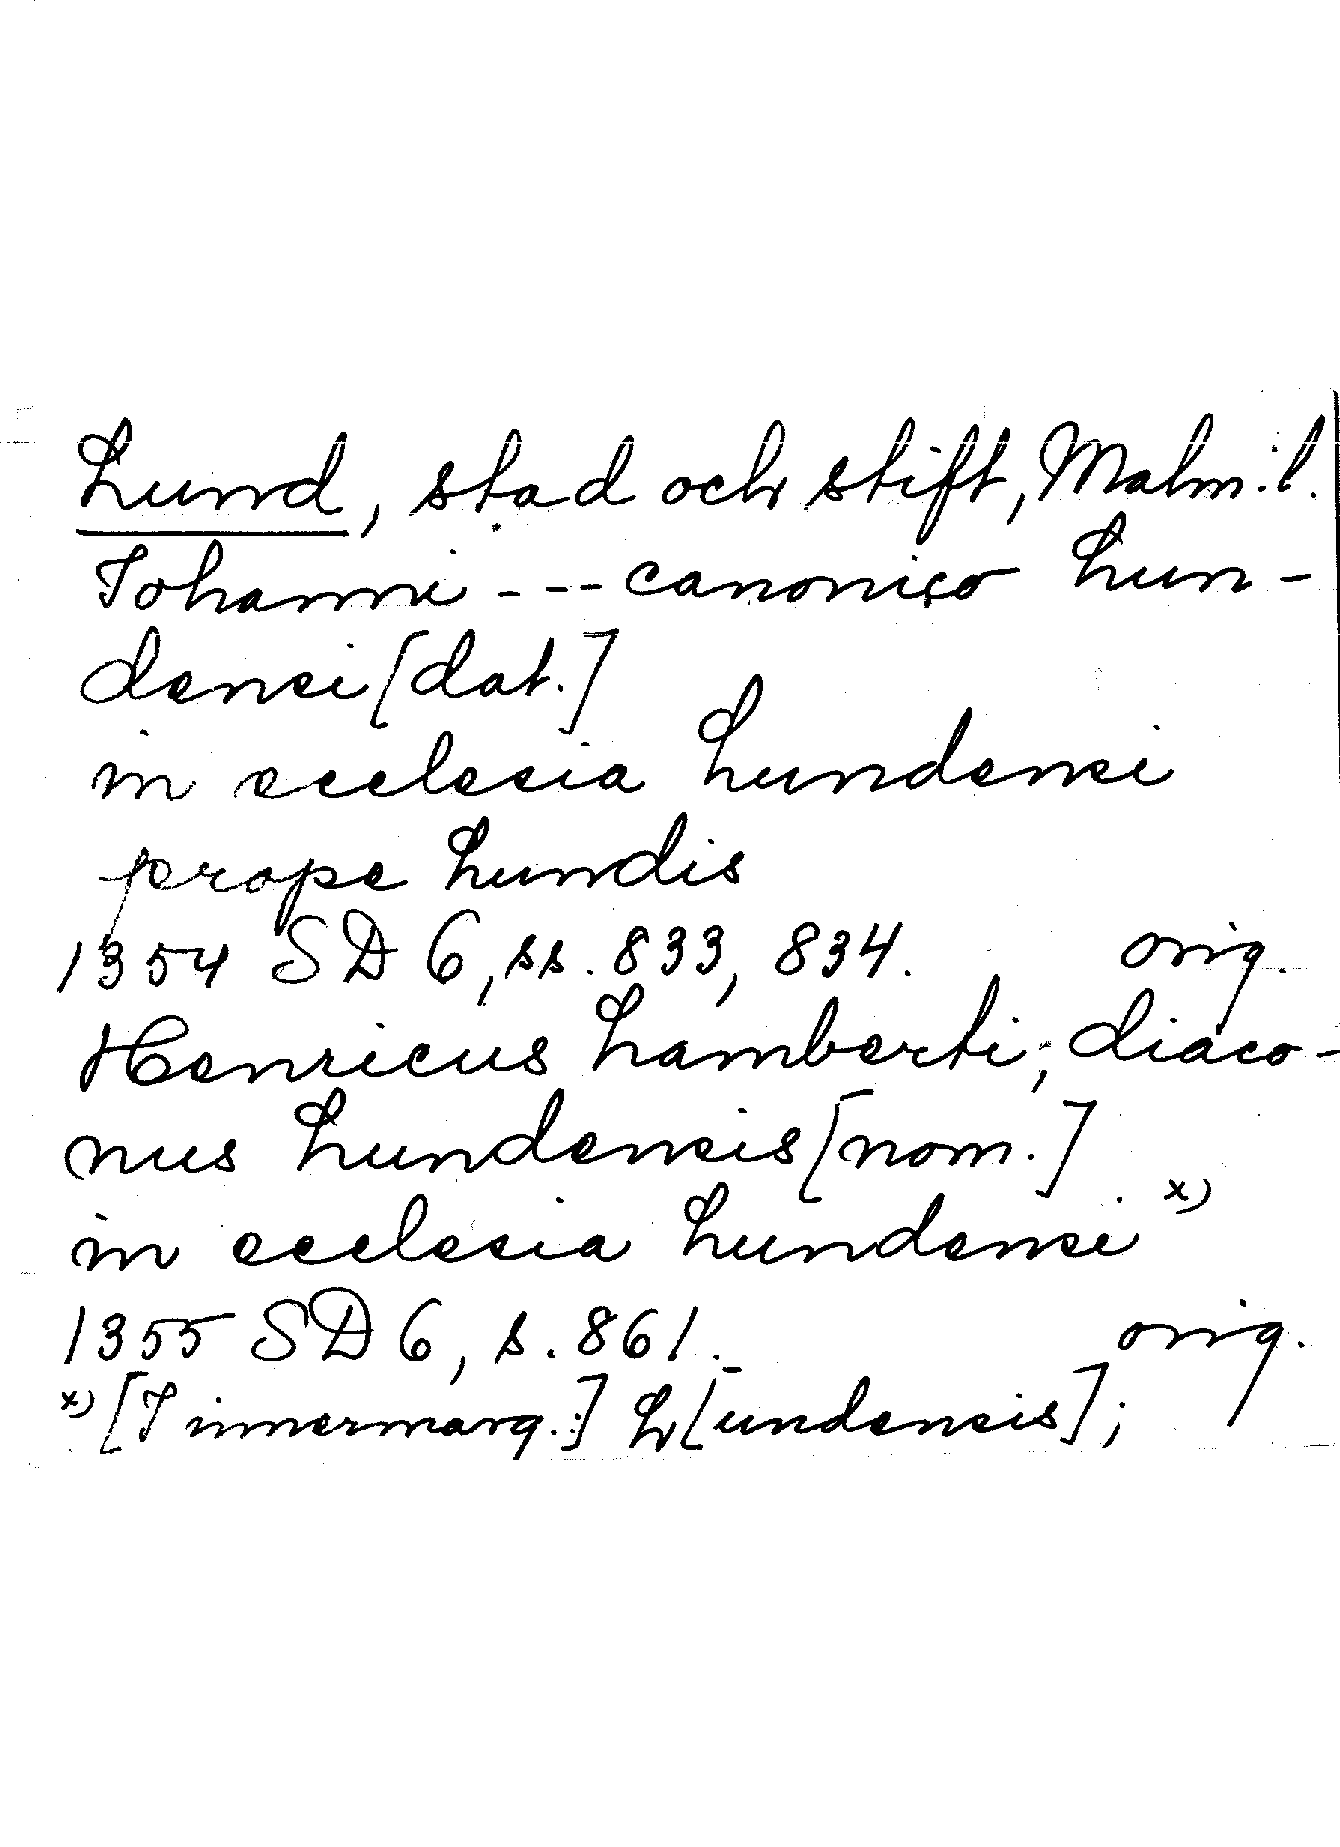 Lund, stad och stift, Malm.l.
Iohanni --- canonico Lun-
densi [dat.]
in ecclesia Lundensi
prope Lundis
1354 SD 6, ss. 833, 834. orig.
Henricus Lamberti; diaco-
nus Lundensis [nom.]
in ecclesia Lundensi x)
1355 SD 6, s. 861. orig.
x) [I innermarg.:] L[undensis];